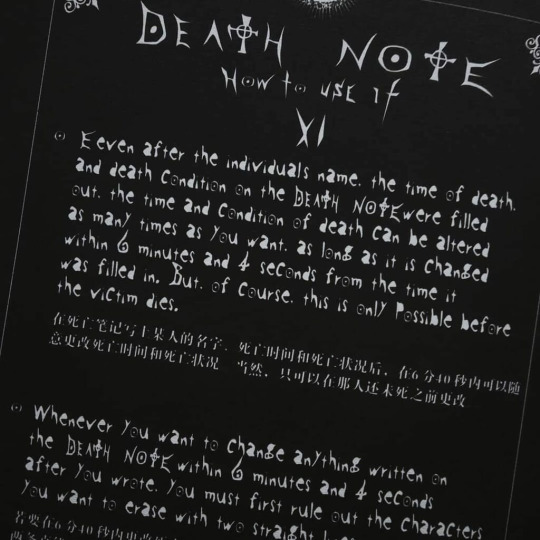 DEATH NOTE
How to use it
XI
Eeven after the individuals name, the time of death,
and death condition on the DEATH NOTE were filled
out, the time and condition of death can be altered
as many times as you want, as long as it is changed
within 6 minutes and 4 seconds from the time it
was filled in. But, of course, this is only possible before
the victim dies.
在死亡笔记写上某人的名字、死亡时间和死亡状况后，在6分40秒内可以随
意更改死亡时间和死亡状况 当然，只可以在那人还未死之前更改
Whenever you want to change anything written on
the DEATH NOTE within 6 minutes and 4 seconds
after you wrote, you must first rule out the characters
you want to erase with two straight
若要在6分40秒内更改